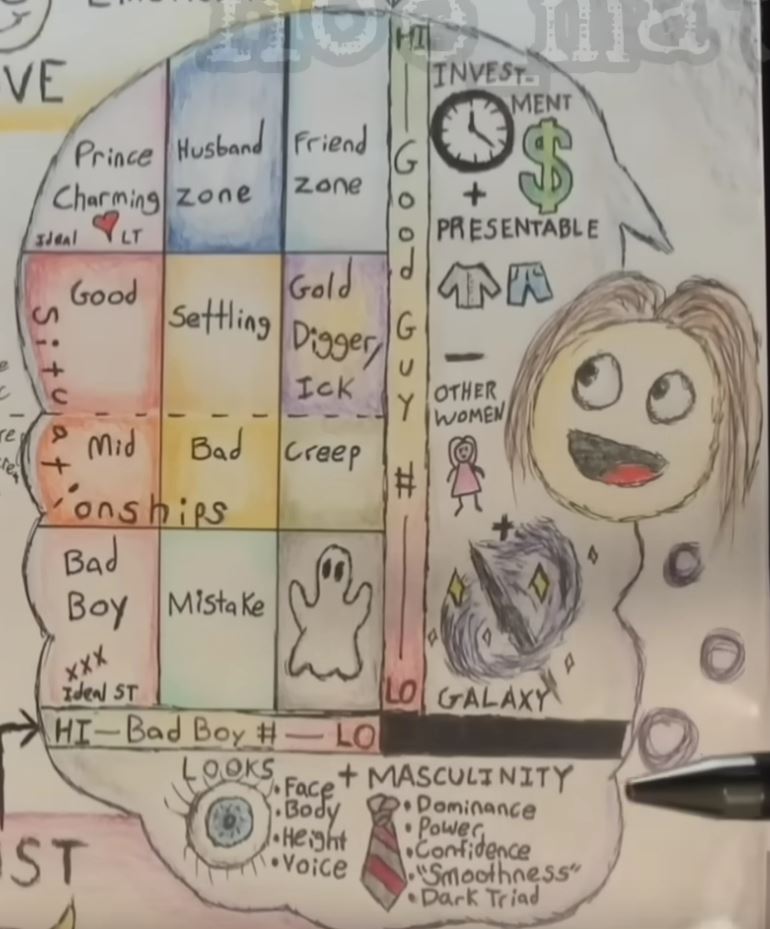 VE
HI
INVEST-
MENT
$
+
PRESENTABLE
-
OTHER
WOMEN
+
GALAXY
Good Guy #
LO
Prince
Charming
Ideal LT
Husband
zone
Friend
zone
Good
Settling
Gold
Digger/
Ick
Situationships
Mid
Bad
Creep
Bad
Boy
xxx
Ideal ST
Mistake
HI-Bad Boy #-LO
LOOKS
• Face
• Body
• Height
• Voice
+ MASCULINITY
• Dominance
• Power
• Confidence
• "Smoothness"
• Dark Triad
ST